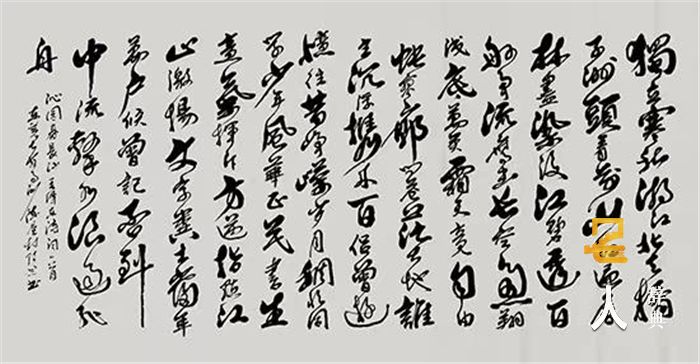 獨立寒秋湘江北去橘
子洲頭看萬山紅遍層
林盡染漫江碧透百
舸争流鷹击長空魚翔
浅底萬类霜天竞自由
悵寥廓問蒼茫大地誰
主沉浮攜来百侣曾遊
憶往昔峥嵘岁月稠恰同
学少年風華正茂書生
意氣揮斥方遒指點江
山激揚文字糞土當年
萬户侯曾記否到
中流擊水浪遏飛
舟
沁園春長沙毛澤東詩詞
名人辞典